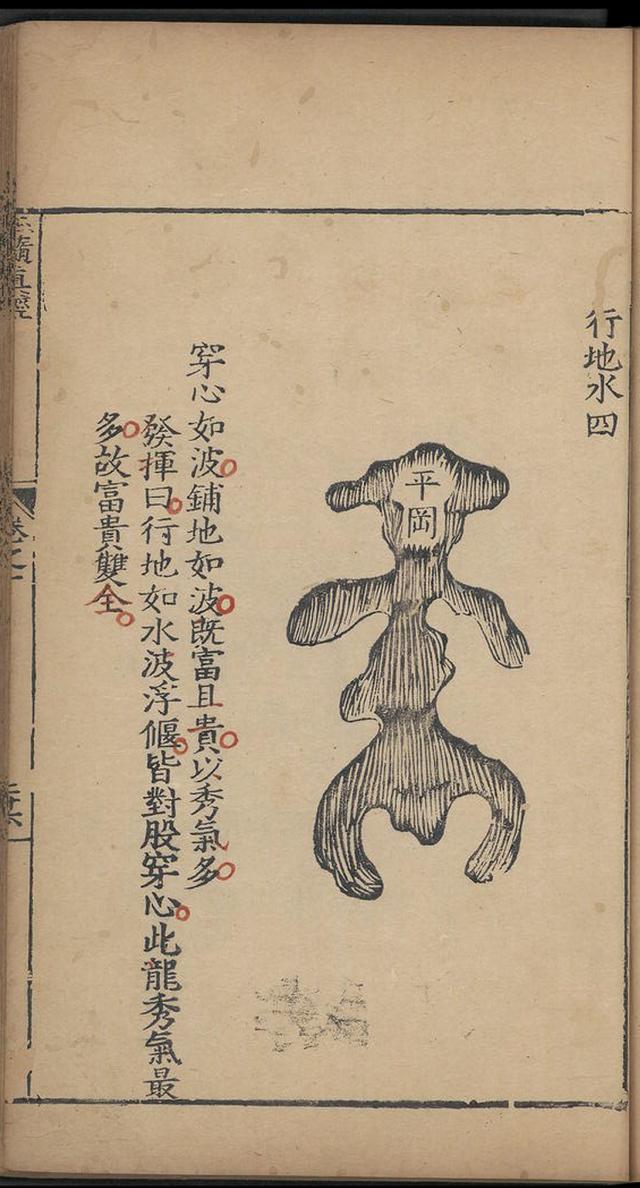 行地水四
平岡
穿心如波鋪地如波既富且貴以秀氣多
發揮曰行地如水波浮偃皆對股穿心此龍秀氣最
多故富貴雙全
直經
卷之